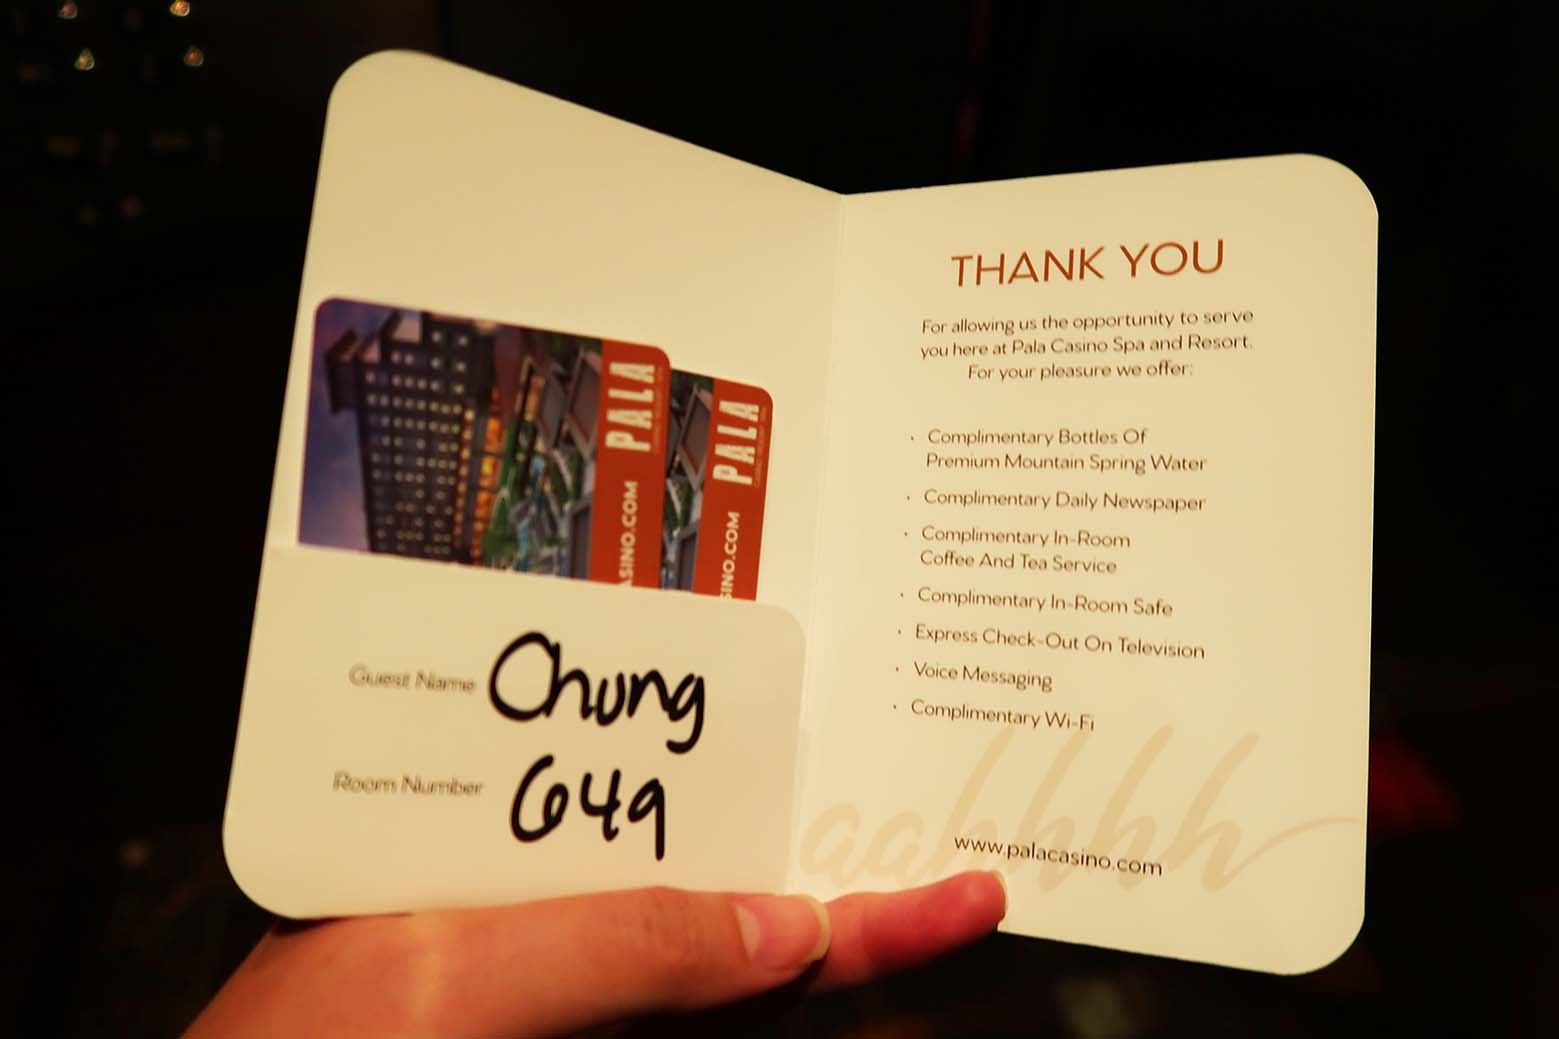 PALA
ASINO.COM
PALA
SINO.COM
Guest Name Chung
Room Number 649
THANK YOU
For allowing us the opportunity to serve
you here at Pala Casino Spa and Resort.
For your pleasure we offer:
· Complimentary Bottles Of
Premium Mountain Spring Water
· Complimentary Daily Newspaper
· Complimentary In-Room
Coffee And Tea Service
· Complimentary In-Room Safe
· Express Check-Out On Television
· Voice Messaging
· Complimentary Wi-Fi
aahhhh
www.palacasino.com